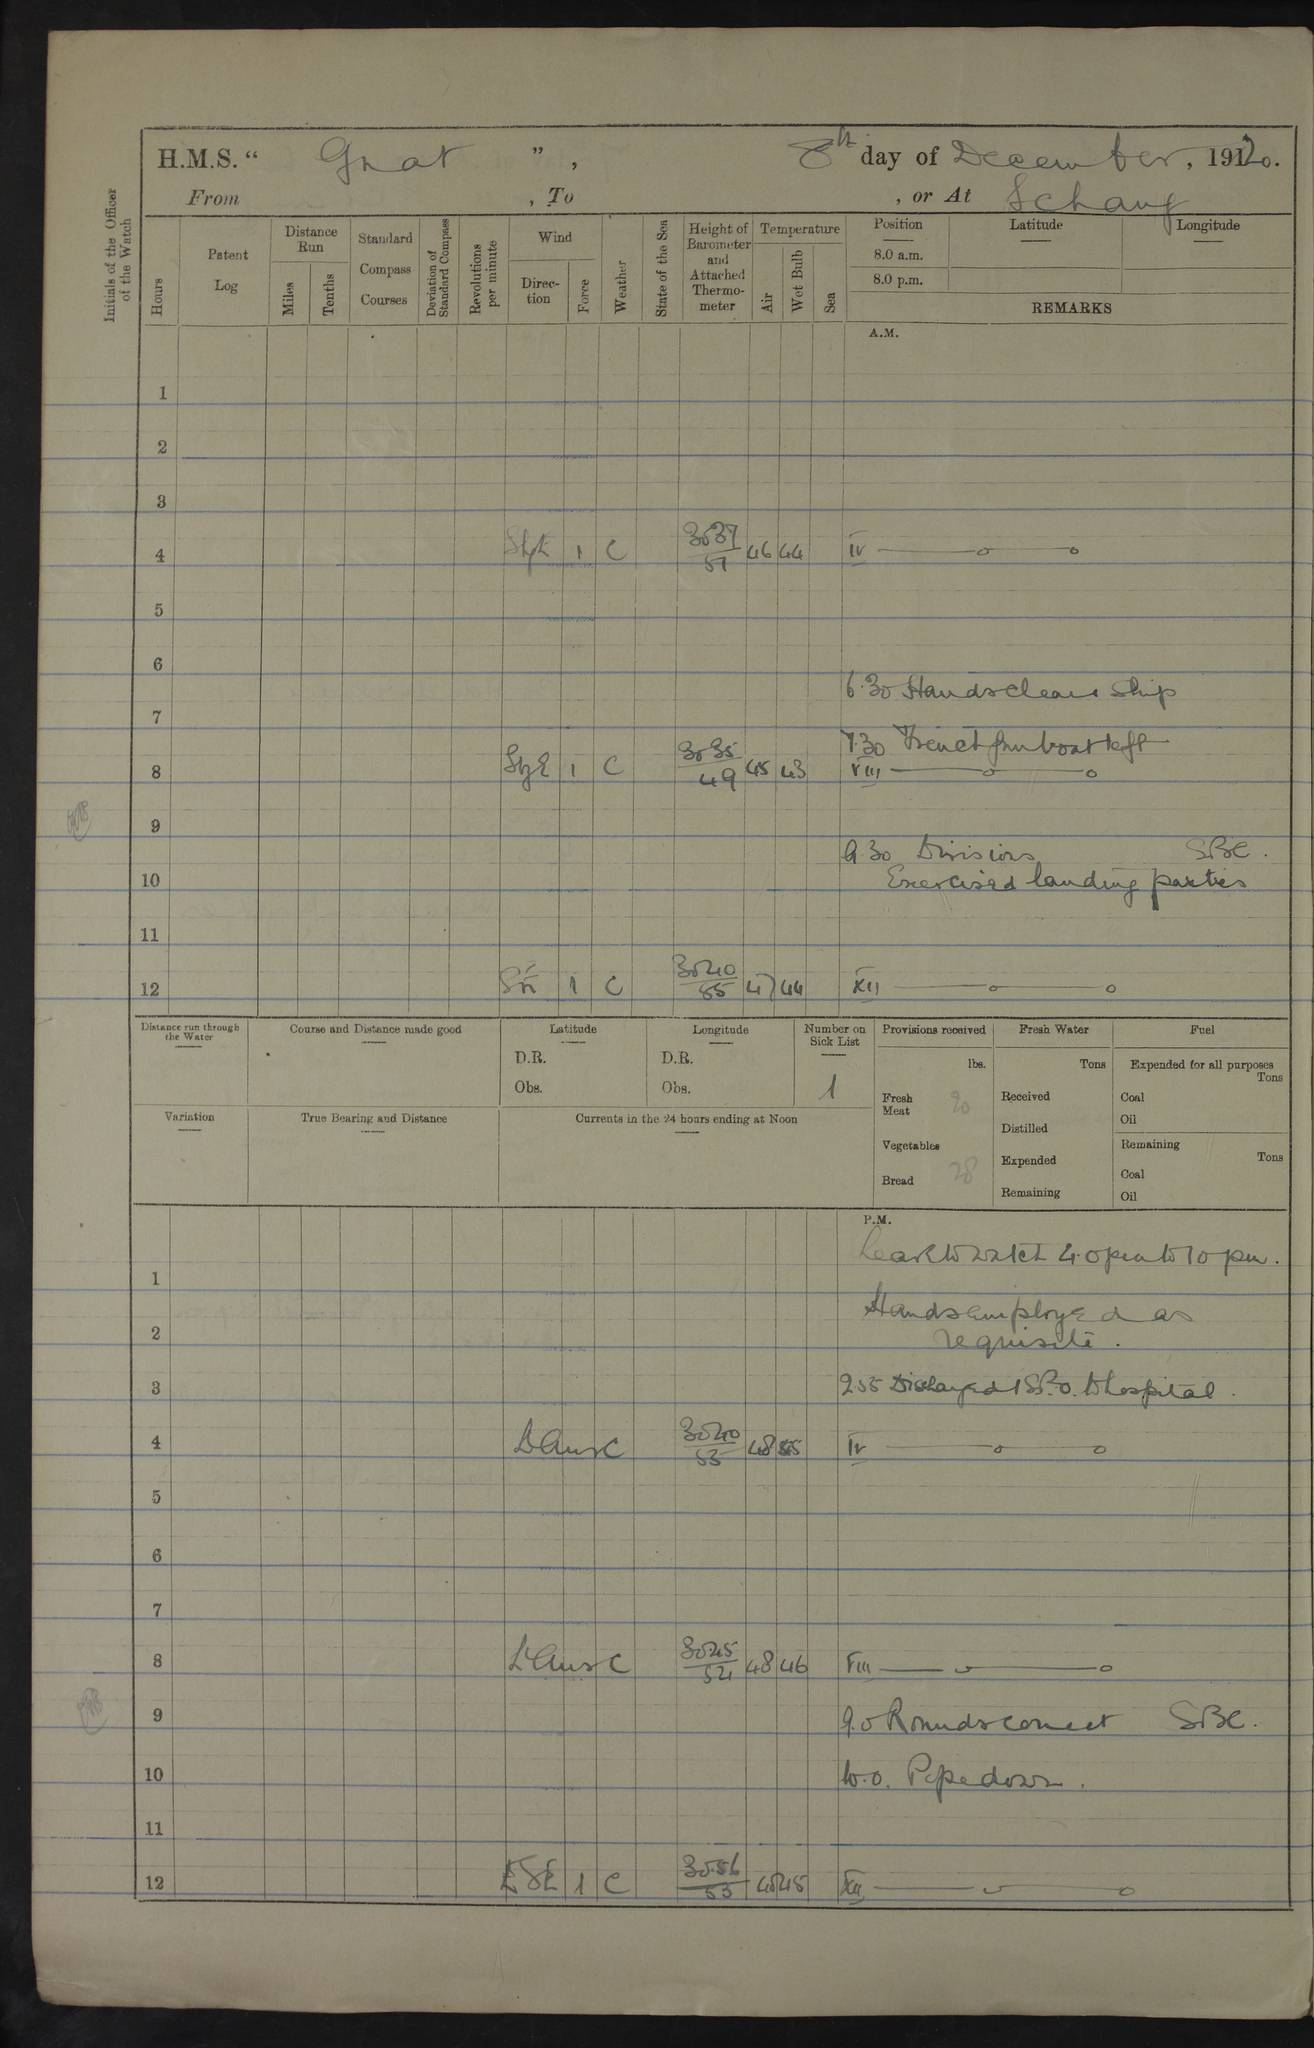 H.M.S. “ Gnat ” , 8th day of December, 1920.
From , To , or At Ichang
Initials of the Officer of the Watch
Hours
Patent Log
Distance Run
Miles
Tenths
Standard Compass Courses
Deviation of Standard Compass
Revolutions per minute
Wind
Direction
Force
Weather
State of the Sea
Height of Barometer and Attached Thermometer
Temperature
Air
Wet Bulb
Sea
Position
8.0 a.m.
8.0 p.m.
Latitude
Longitude
REMARKS
A.M.
1
2
3
4 SbyE 1 C 30.37 51 46 44 IV
5
6
6.30 Hands clean ship
7
7.30 French gunboat left
8 SbyE 1 C 30.35 49 45 43 VIII
9
9.30 Divisions SBC.
10 Exercised landing parties
11
12 1 C 30.40 55 47 44 XII
Distance run through the Water
Course and Distance made good
Latitude
D.R.
Obs.
Longitude
D.R.
Obs.
Number on Sick List
1
Provisions received
lbs.
Fresh Meat 90
Vegetables
Bread 28
Fresh Water
Tons
Received
Distilled
Expended
Remaining
Fuel
Expended for all purposes
Tons
Coal
Oil
Remaining
Tons
Coal
Oil
Variation
True Bearing and Distance
Currents in the 24 hours ending at Noon
P.M.
Leave to watch 4.0 pm to 10 pm.
1
Hands employed as
2 requisite.
3 2.55 Discharged 1 to hospital.
4 C 30.40 55 48 IV
5
6
7
8 C 30.45 54 48 46 VIII
9 9.0 Rounds correct SBC.
10 10.0. Pipe down.
11
12 ESE 1 C 30.56 53 45 XII